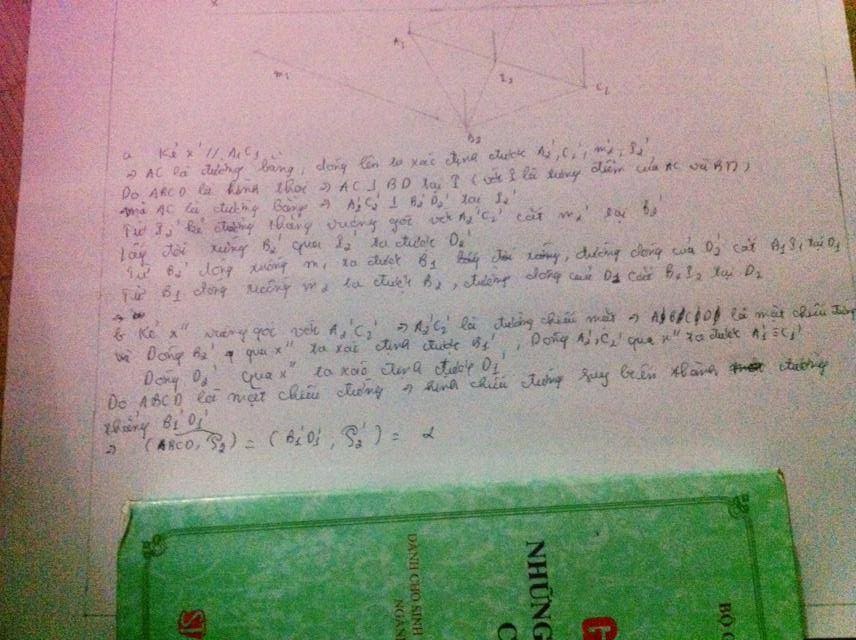 x
A₁
m₁
I₂
C₁
B₂
a Kẻ x' // A₁C₁
⇒ AC là đường bằng, dóng lên ta xác định được A₂', C₂', m₂', I₂'
Do ABCD là hình thoi ⇒ AC ⊥ BD tại I (với I là trung điểm của AC và BD)
mà AC là đường bằng ⇒ A₂'C₂' ⊥ B₂'D₂' tại I₂'
Từ I₂' kẻ đường thẳng vuông góc với A₂'C₂' cắt m₂' tại B₂'
Lấy đối xứng B₂' qua I₂' ta được D₂'
Từ B₂' dóng xuống m₁ ta được B₁ xuống, đường dóng của D₂' cắt B₁I₁ tại D₁
Từ B₁ dóng xuống m₂ ta được B₂, đường dóng của D₁ cắt B₂I₂ tại D₂
b, Kẻ x'' vuông góc với A₂'C₂' ⇒ A₂'C₂' là đường chiếu mặt ⇒ ABCD là mặt chiếu đứng
và Dóng B₂' qua x'' ta xác định được B₁', Dóng A₂', C₂' qua x'' ta được A₁' ≡ C₁'
Dóng D₂' qua x'' ta xác định được D₁'
Do ABCD là mặt chiếu đứng ⇒ hình chiếu đứng suy biến thành đường
thẳng B₁'D₁'
⇒ (ABCD, P₂) = (B₁'D₁', P₂') = α
DÀNH CHO SINH
NGÀNH
NHỮNG
C
G
BỘ G